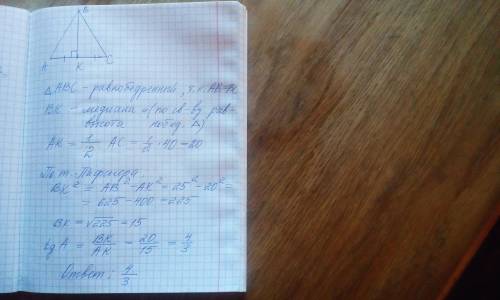 B
A K C
△ABC - равнобедренный, т.к. AK=
BK - медиана и (по св-ву рав-
высота нобед. △)
AK = 1/2 AC = 1/2 · 40 = 20
По т. Пифагора.
BK² = AB² - AK² = 25² - 20² =
= 625 - 400 = 225
BK = √225 = 15
tg A = BK/AK = 20/15 = 4/3
Ответ: 4/3